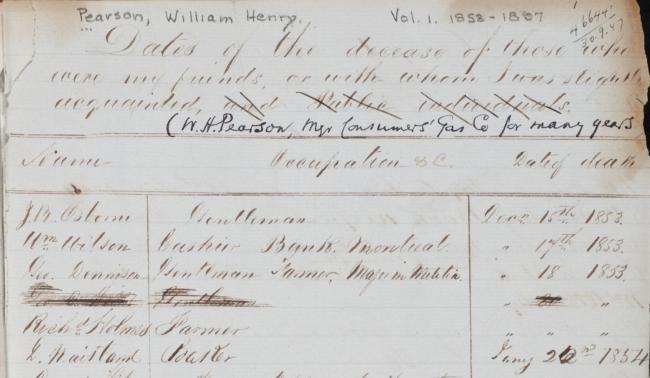 Pearson, William Henry.   Vol. 1. 1858-1887
30.9.47
Dates of the decease of those who
were my friends, or with whom I was slightly
acquainted, and Public individuals.
(W.H. Pearson, Mgr Consumers' Gas Co for many years
Name   Occupation &C.   Date of death
J.B. Osborne   Gentleman   Decr 15th 1853.
Wm Wilson   Cashier Bank Montreal   " 17th 1853.
Geo. Dennison   Gentleman Farmer, Major in Militia   " 18 1853
Gentleman   "   "
Richd Holmes   Farmer   "   "   "
Maitland   Baker   Jany 1854